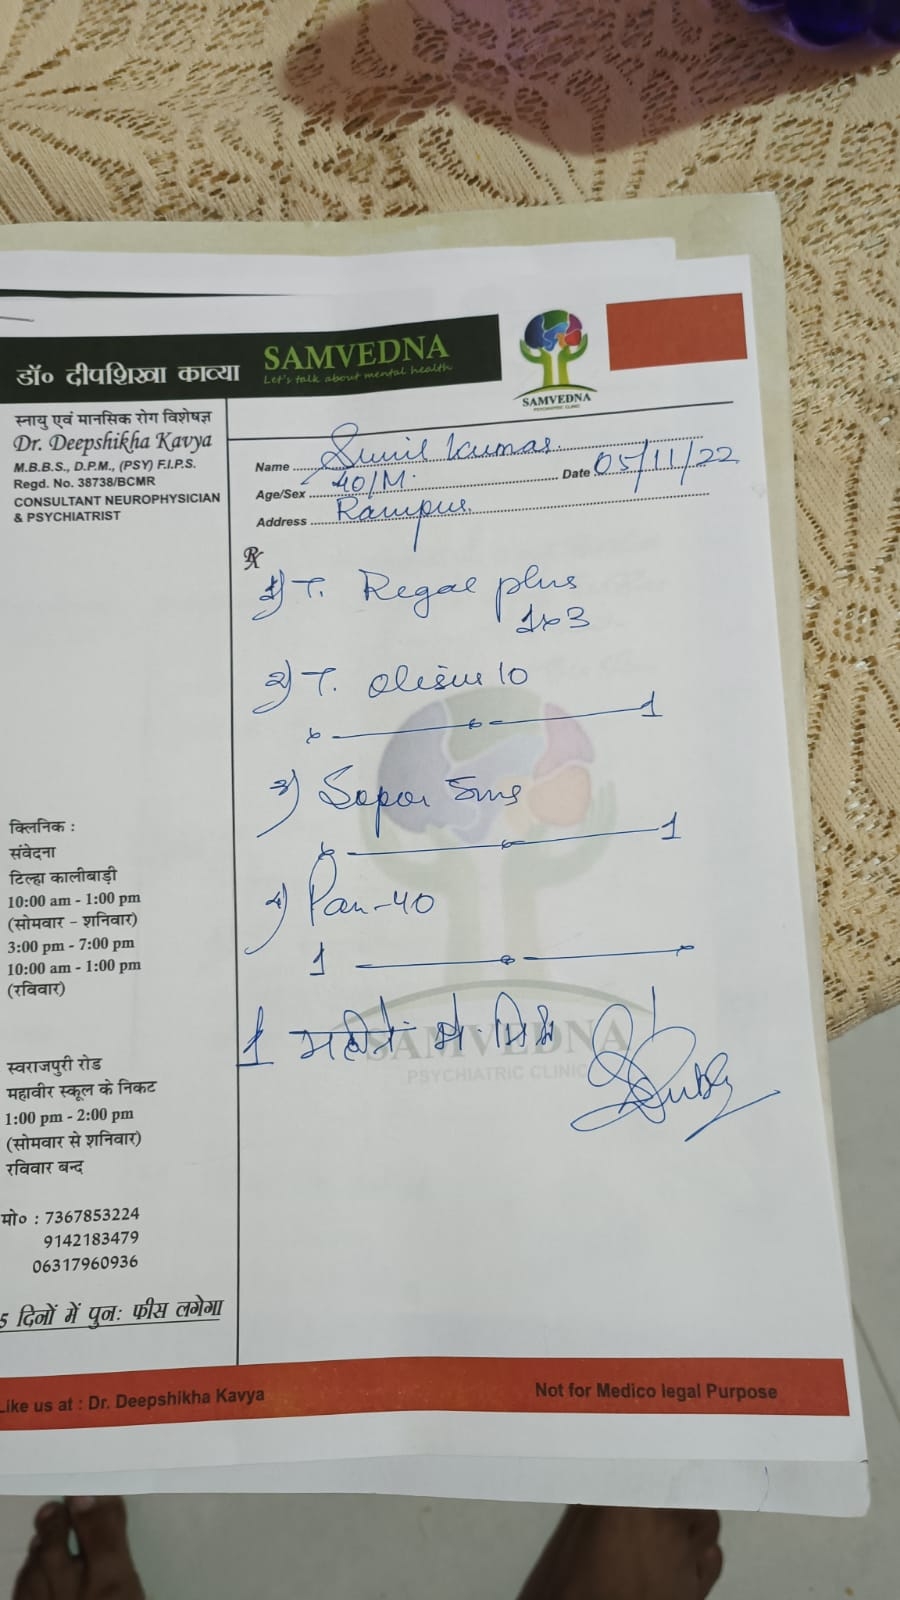 डॉ० दीपशिखा काव्या
SAMVEDNA
Let's talk about mental health
SAMVEDNA
PSYCHIATRIC CLINIC
स्नायु एवं मानसिक रोग विशेषज्ञ
Dr. Deepshikha Kavya
M.B.B.S., D.P.M., (PSY) F.I.P.S.
Regd. No. 38738/BCMR
CONSULTANT NEUROPHYSICIAN
& PSYCHIATRIST
Name Sunil Kumar
Age/Sex 40/M.
Date 05/11/22
Address Rampur
Rx
1) T. Regal plus
1x3
2) T. 10
x 1
3) 5mg
x 1
4) Pan-40
1
1 महीने मे
SAMVEDNA
PSYCHIATRIC CLINIC
क्लिनिक :
संवेदना
टिल्हा कालीबाड़ी
10:00 am - 1:00 pm
(सोमवार - शनिवार)
3:00 pm - 7:00 pm
10:00 am - 1:00 pm
(रविवार)
स्वराजपुरी रोड
महावीर स्कूल के निकट
1:00 pm - 2:00 pm
(सोमवार से शनिवार)
रविवार बन्द
मो० : 7367853224
9142183479
06317960936
5 दिनों में पुनः फीस लगेगा
Like us at : Dr. Deepshikha Kavya
Not for Medico legal Purpose